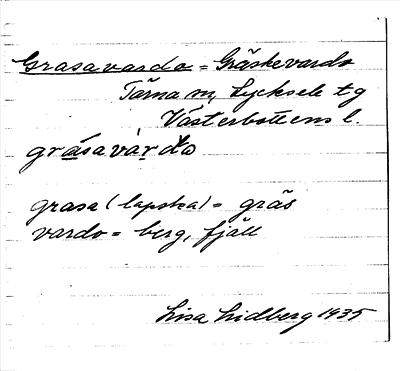 Grasavardo = Gräskevardo
Tärna m, Lycksele tg
Västerbottens l.
gràsavàrdo
grasa (lapska) = gräs
vardo = berg, fjäll
Lisa Lidberg 1935